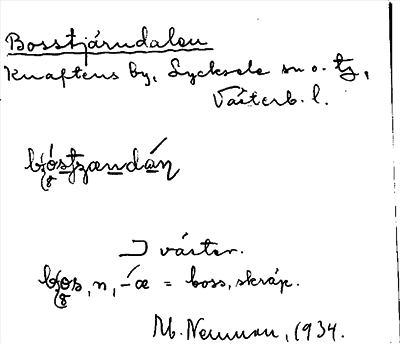 Bosstjärndalen
Knaftens by, Lycksele sn o. tg,
Västerb. l.
⊐ väster.
, n, -æ = boss, skräp.
M. Neuman, 1934.